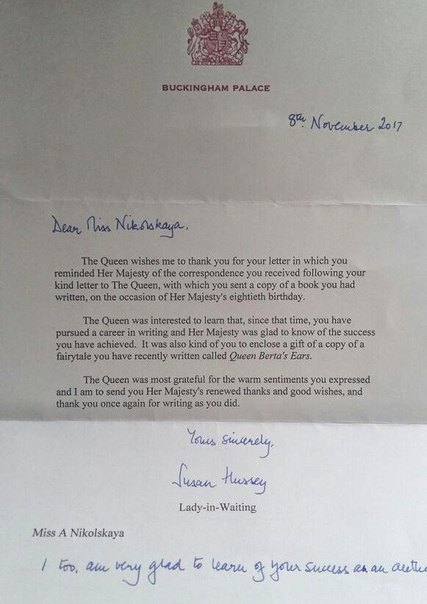 BUCKINGHAM PALACE
8th November 2017
Dear Miss Nikolskaya,
The Queen wishes me to thank you for your letter in which you
reminded Her Majesty of the correspondence you received following your
kind letter to The Queen, with which you sent a copy of a book you had
written, on the occasion of Her Majesty's eightieth birthday.
The Queen was interested to learn that, since that time, you have
pursued a career in writing and Her Majesty was glad to know of the success
you have achieved. It was also kind of you to enclose a gift of a copy of a
fairytale you have recently written called Queen Berta's Ears.
The Queen was most grateful for the warm sentiments you expressed
and I am to send you Her Majesty's renewed thanks and good wishes, and
thank you once again for writing as you did.
Yours sincerely,
Susan Hussey
Lady-in-Waiting
Miss A Nikolskaya
I too, am very glad to learn of your success as an